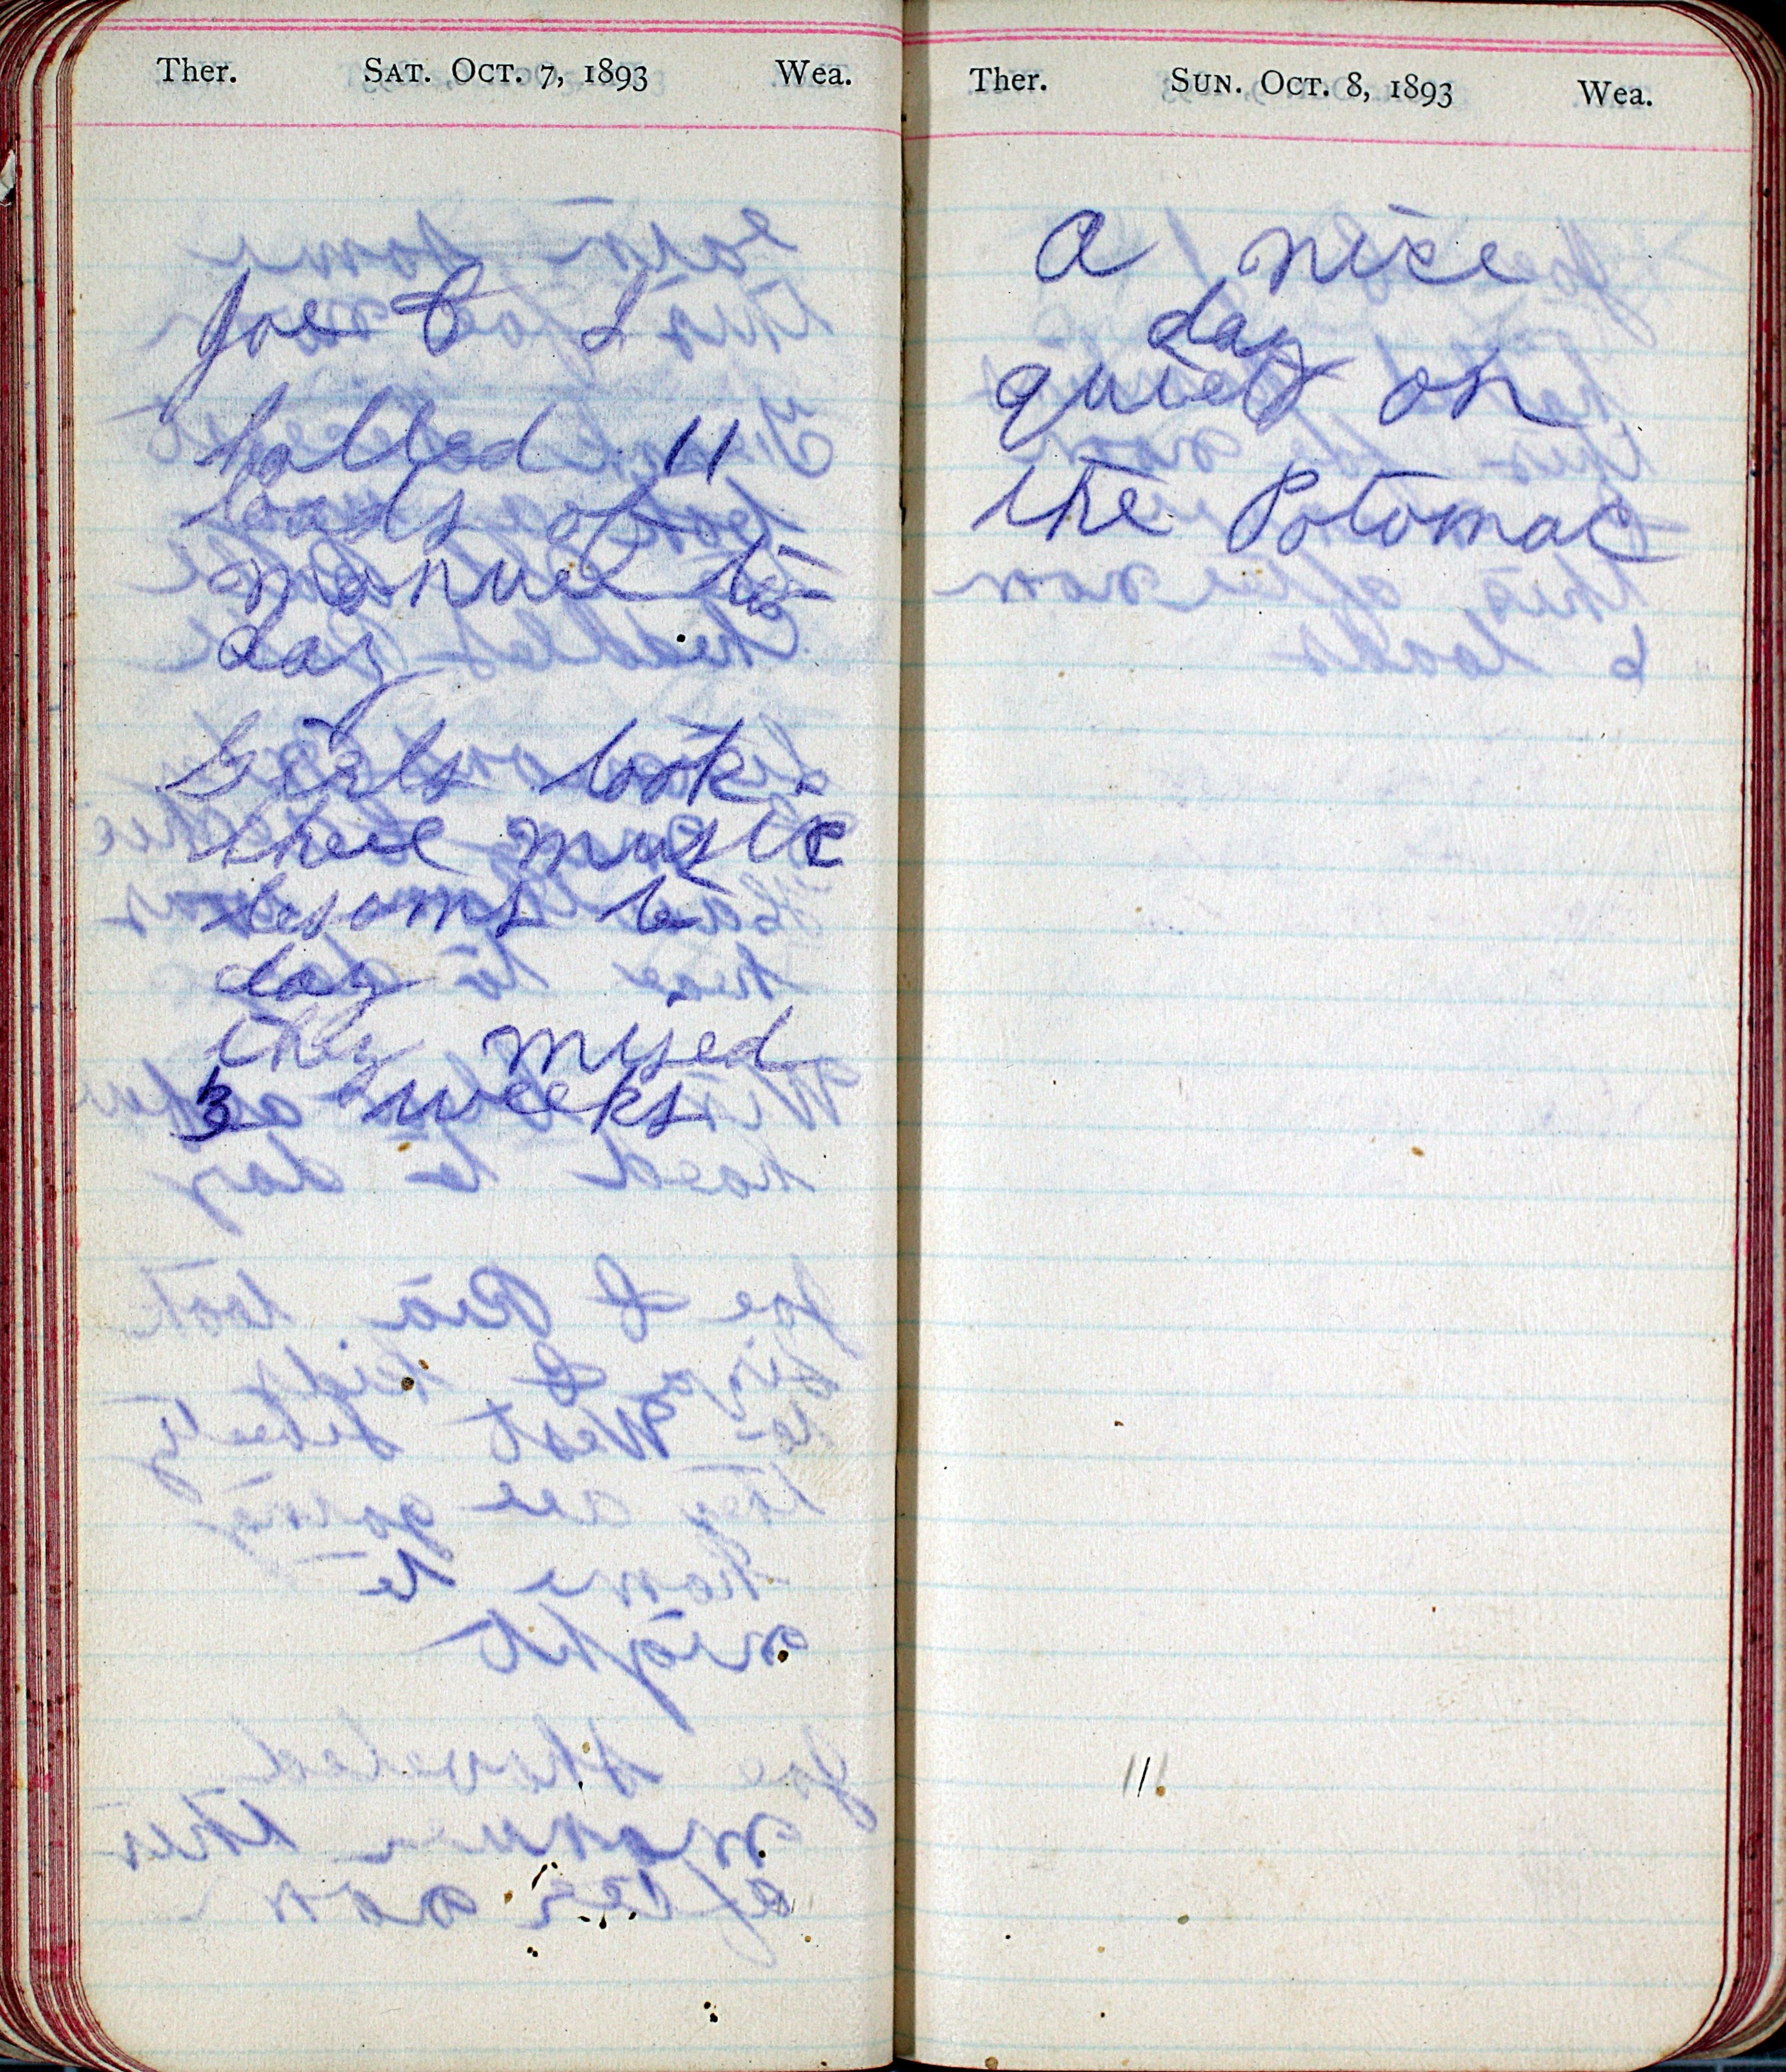 Ther. SAT. OCT. 7, 1893 Wea.
Joe & I
halled 11
loads of
manue to
day
Girls took
there music
lesoms to
day
they mised
3 weeks
Ther. SUN. OCT. 8, 1893 Wea.
A nice
day
quiet on
the Potomac